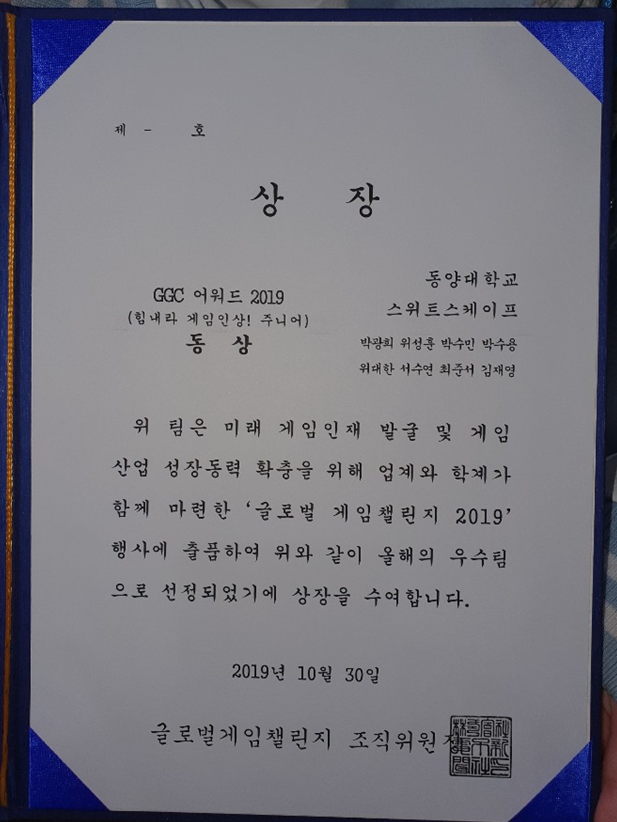 제 - 호
상 장
동양대학교
스위트스케이프
박광희 위성훈 박수민 박수용
위대한 서수연 최준서 김재영
GGC 어워드 2019
(힘내라 게임인상! 주니어)
동 상
위 팀은 미래 게임인재 발굴 및 게임
산업 성장동력 확충을 위해 업계와 학계가
함께 마련한 '글로벌 게임챌린지 2019'
행사에 출품하여 위와 같이 올해의 우수팀
으로 선정되었기에 상장을 수여합니다.
2019년 10월 30일
글로벌게임챌린지 조직위원